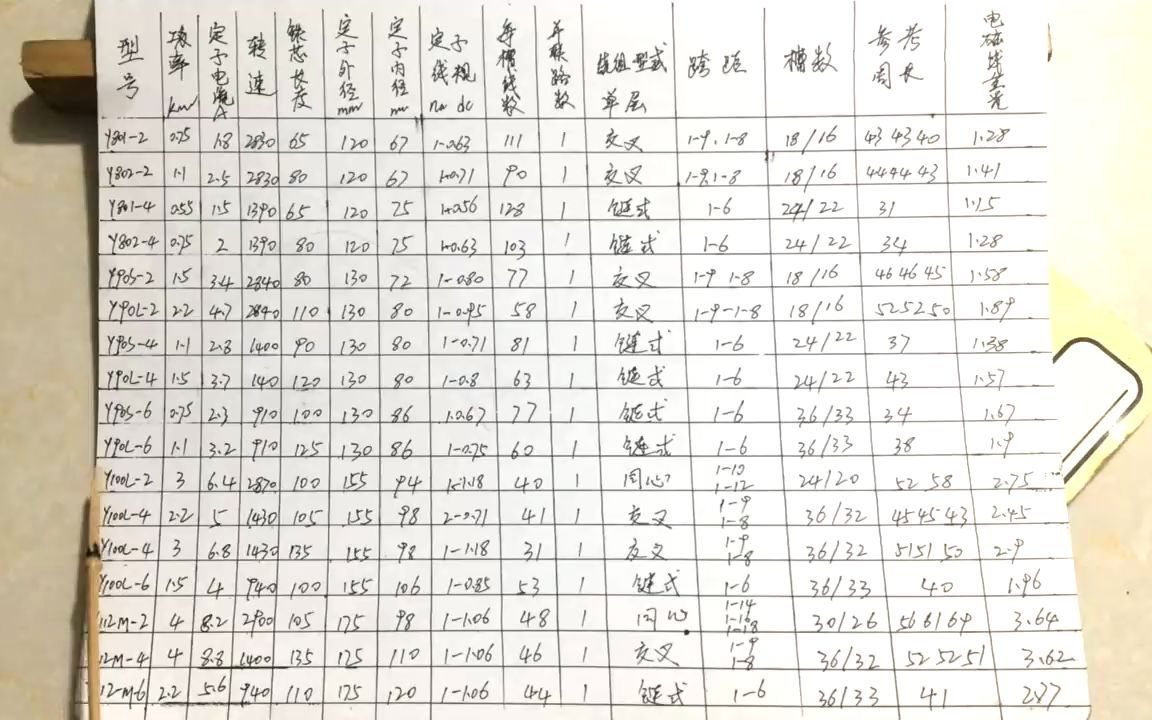 型号 功率 kw 定子电流 A 转速 铁芯长度 定子外径 mm 定子内径 mm 定子线规 na dc 每槽线数 并联路数 绕组型式 单层 跨距 槽数 参考周长 电磁线重
Y801-2 0.75 1.8 2830 65 120 67 1-0.63 111 1 交叉 1-9.1-8 18/16 43 43 40 1.28
Y802-2 1.1 2.5 2830 80 120 67 1-0.71 90 1 交叉 1-9.1-8 18/16 44 44 43 1.41
Y801-4 0.55 1.5 1390 65 120 75 1-0.56 128 1 链式 1-6 24/22 31 1.15
Y802-4 0.75 2 1390 80 120 75 1-0.63 103 1 链式 1-6 24/22 34 1.28
Y90S-2 1.5 3.4 2840 80 130 72 1-0.80 77 1 交叉 1-9 1-8 18/16 46 46 45 1.58
Y90L-2 2.2 4.7 2840 110 130 80 1-0.95 58 1 交叉 1-9-1-8 18/16 52 52 50 1.89
Y90S-4 1.1 2.8 1400 90 130 80 1-0.71 81 1 链式 1-6 24/22 37 1.38
Y90L-4 1.5 3.7 140 120 130 80 1-0.8 63 1 链式 1-6 24/22 43 1.57
Y90S-6 0.75 2.3 910 100 130 86 1.0.67 77 1 链式 1-6 36/33 34 1.67
Y90L-6 1.1 3.2 910 125 130 86 1-0.75 60 1 链式 1-6 36/33 38 1.9
Y100L-2 3 6.4 2870 100 155 94 1-1.18 40 1 同心 1-10 1-12 24/20 52 58 2.75
Y100L-4 2.2 5 1430 105 155 98 2-0.71 41 1 交叉 1-9 1-8 36/32 45 45 43 2.45
Y100L-4 3 6.8 1430 135 155 98 1-1.18 31 1 交叉 1-9 1-8 36/32 51 51 50 2.9
Y100L-6 1.5 4 940 100 155 106 1-0.85 53 1 链式 1-6 36/33 40 1.96
112M-2 4 8.2 2900 105 175 98 1-1.06 48 1 同心 1-14 1-16 1-18 30/26 56 61 64 3.64
12M-4 4 8.8 1400 135 175 110 1-1.06 46 1 交叉 1-9 1-8 36/32 52 52 51 3.62
12M-6 2.2 5.6 940 110 175 120 1-1.06 44 1 链式 1-6 36/33 41 2.87